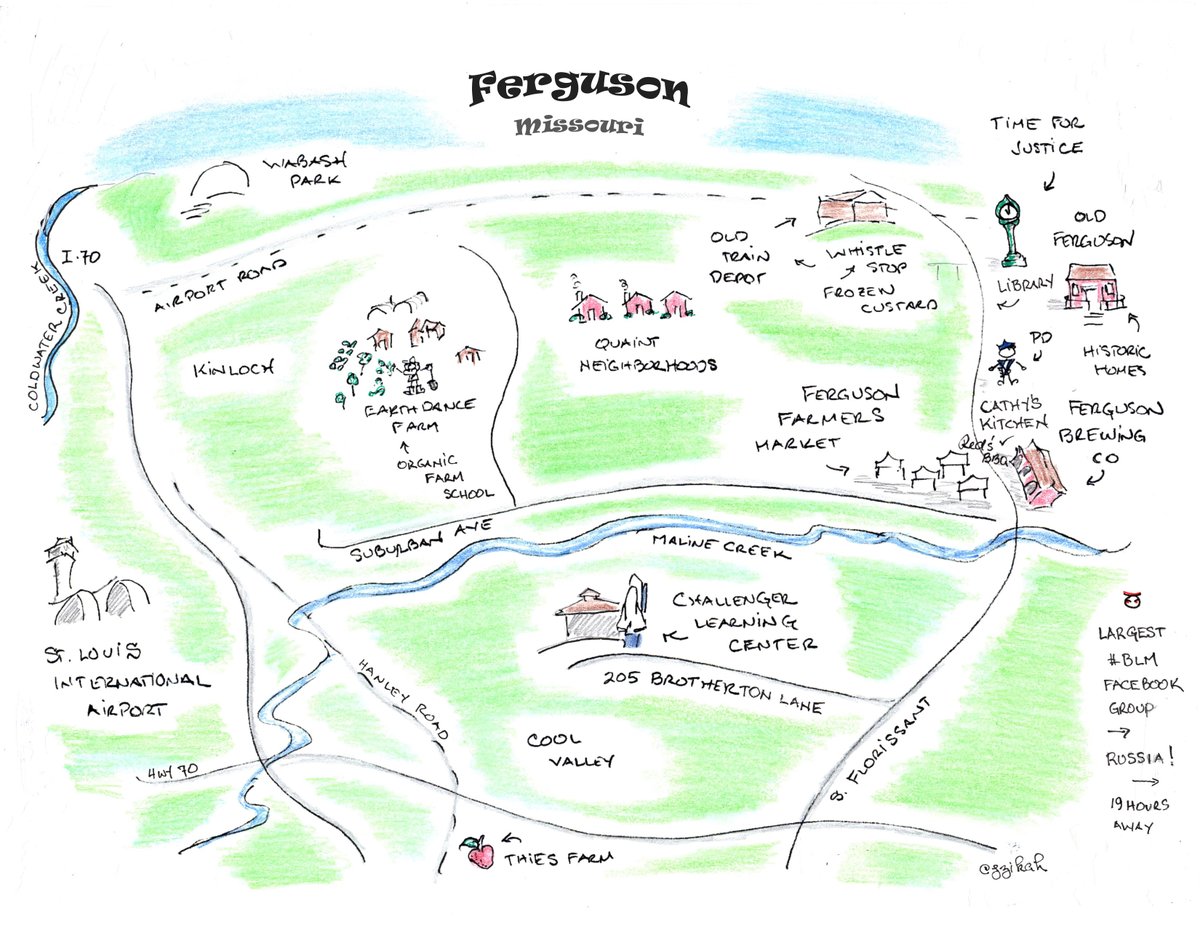 Ferguson
Missouri
TIME FOR
JUSTICE
WABASH
PARK
OLD
FERGUSON
I-70
COLDWATER CREEK
AIRPORT ROAD
OLD
TRAIN
DEPOT
WHISTLE
STOP
FROZEN
CUSTARD
LIBRARY
KINLOCH
QUAINT
NEIGHBORHOODS
PD
HISTORIC
HOMES
EARTHDANCE
FARM
ORGANIC
FARM
SCHOOL
FERGUSON
FARMERS
MARKET
CATHY'S
KITCHEN
Red's
BBQ
FERGUSON
BREWING
CO
SUBURBAN AVE
MALINE CREEK
ST. LOUIS
INTERNATIONAL
AIRPORT
CHALLENGER
LEARNING
CENTER
205 BROTHERTON LANE
HANLEY ROAD
COOL
VALLEY
S. FLORISSANT
HWY 70
THIES FARM
LARGEST
#BLM
FACEBOOK
GROUP
RUSSIA!
19 HOURS
AWAY
@gzikah